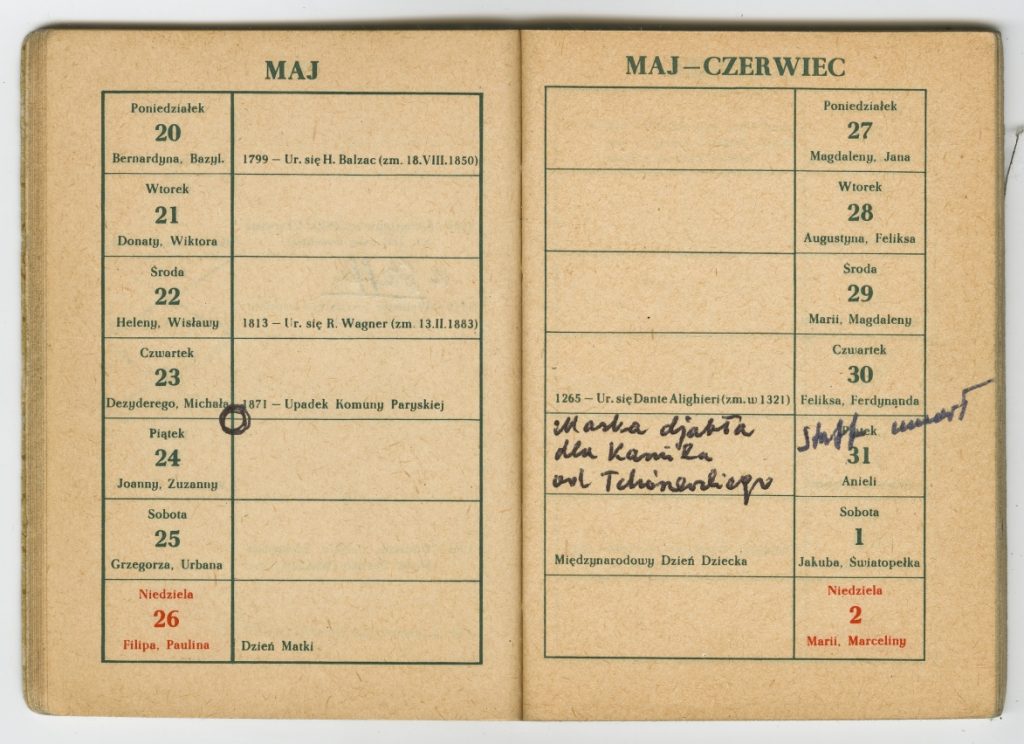 MAJ
Poniedziałek
20
Bernardyna, Bazyl.
1799 — Ur. się H. Balzac (zm. 18.VIII.1850)
Wtorek
21
Donaty, Wiktora
Środa
22
Heleny, Wisławy
1813 — Ur. się R. Wagner (zm. 13.II.1883)
Czwartek
23
Dezyderego, Michała
1871 — Upadek Komuny Paryskiej
Piątek
24
Joanny, Zuzanny
Sobota
25
Grzegorza, Urbana
Niedziela
26
Filipa, Paulina
Dzień Matki
MAJ—CZERWIEC
Poniedziałek
27
Magdaleny, Jana
Wtorek
28
Augustyna, Feliksa
Środa
29
Marii, Magdaleny
Czwartek
30
Feliksa, Ferdynanda
1265 — Ur. się Dante Alighieri (zm. w 1321)
Maska djabła
dla Kamila
od Tchórzewskiego
Piątek
Staff umarł
31
Anieli
Sobota
1
Jakuba, Świętopełka
Międzynarodowy Dzień Dziecka
Niedziela
2
Marii, Marceliny